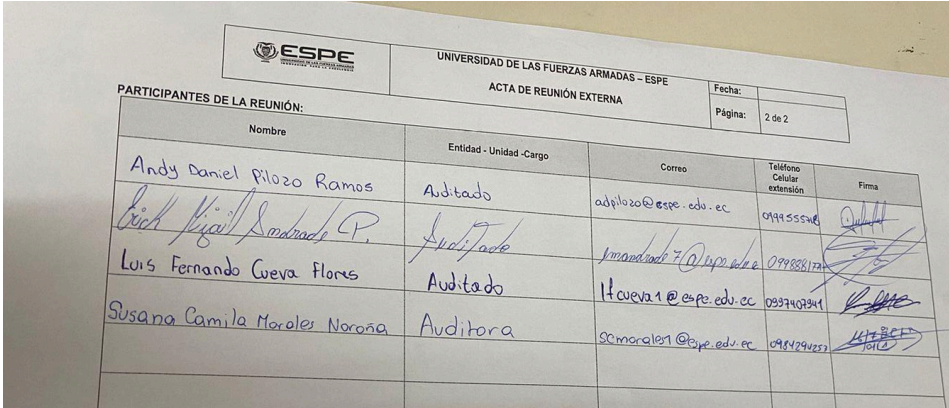 ESPE
UNIVERSIDAD DE LAS FUERZAS ARMADAS
INNOVACIÓN PARA LA EXCELENCIA
UNIVERSIDAD DE LAS FUERZAS ARMADAS – ESPE
ACTA DE REUNIÓN EXTERNA
Fecha:
Página: 2 de 2
PARTICIPANTES DE LA REUNIÓN:
Nombre Entidad - Unidad -Cargo Correo Teléfono Celular extensión Firma
Andy Daniel Pilozo Ramos Auditado adpilozo@espe.edu.ec
Andrade P. Auditado
Luis Fernando Cueva Flores Auditado lfcueva1@espe.edu.ec 0997407941
Susana Camila Morales Noroña Auditora scmorales1@espe.edu.ec 0984294257